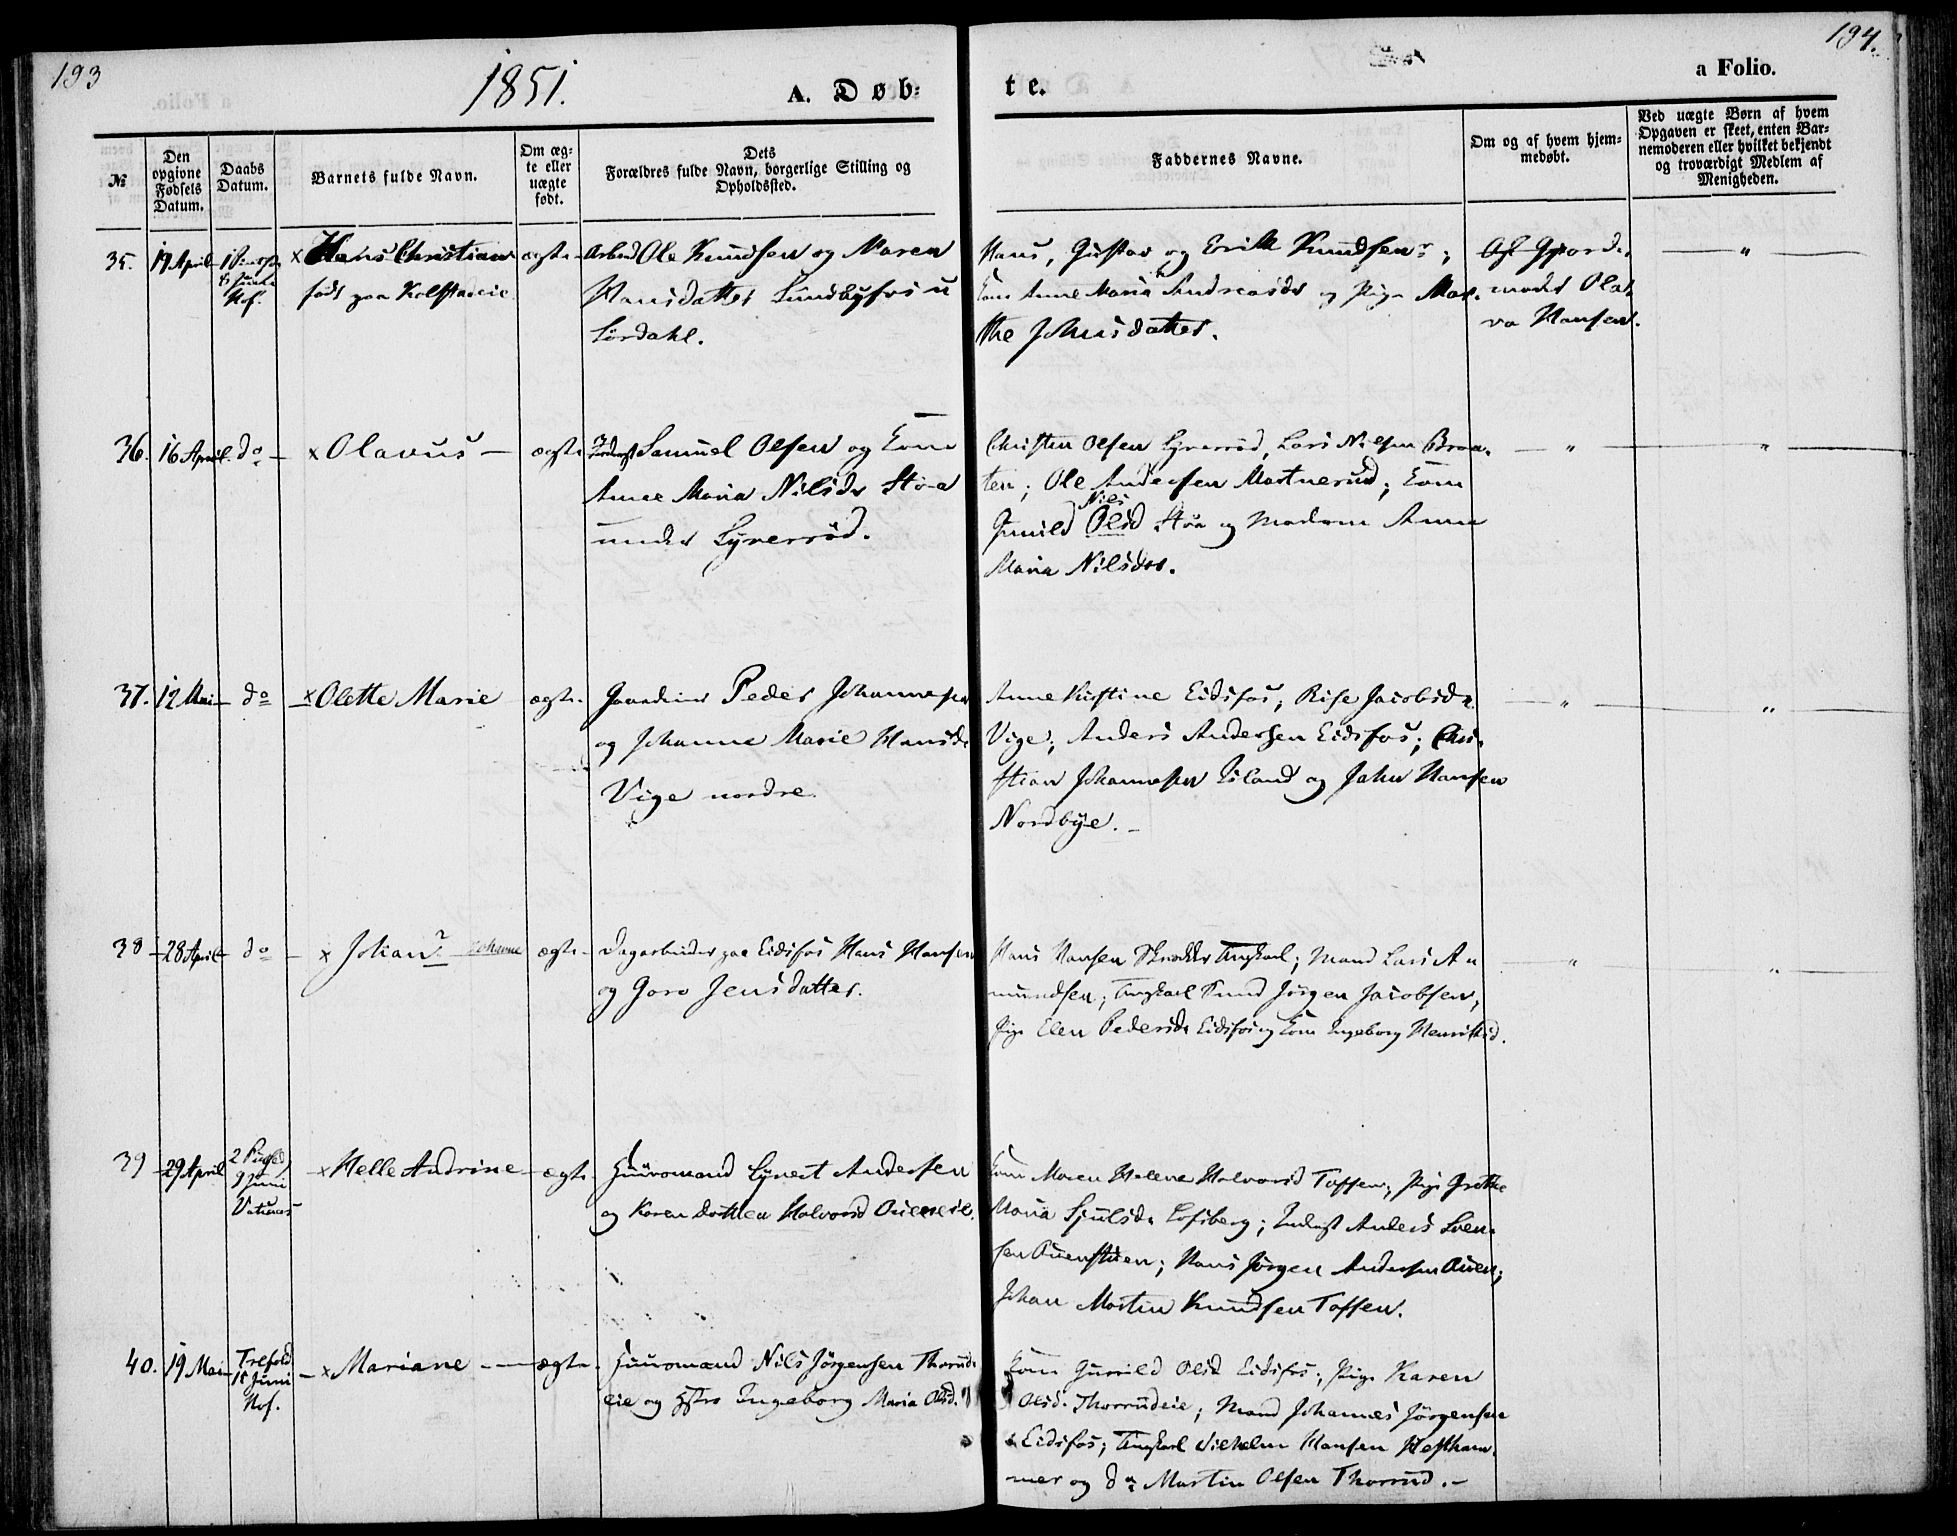 193
1851.
A. Døb-
te.
194.
a Folio.
№
Den opgivne Fødsels Datum.
Daabs Datum.
Barnets fulde Navn.
Om ægte eller uægte født.
Dets Forældres fulde Navn, borgerlige Stilling og Opholdssted.
Faddernes Navne.
Om og af hvem hjemmedøbt.
Ved uægte Børn af hvem Opgaven er skeet, enten Barnemoderen eller hvilket bekjendt og troværdigt Medlem af Menigheden.
35. 19 April
8 Juni
Hof.
x Hans Christian
født paa
ægte
Arbeid Ole Knudsen og Maren
Hansdatter Lundbyfos u
Lørdahl.
Hans, Gustav og Erik Knudsen;
Kone Anne Maria Andreasdr og Pige Mar-
the Johnsdatter.
Af Gjorde-
moder Ola-
va Hansen.
36. 16 April do
x Olavus
ægte
Inderst Samuel Olsen og Kone
Anne Maria Nilsdr Støa
under Lyverrød.
Christen Olsen Lyverrød, Lars Nilsen Braa-
ten; Ole Andersen Martnerud; Kone
Gunild Nils Olsd Støa og Madam Anne
Maria Nilsdr.
37. 12 Mai do
x Olette Marie
ægte
Gaardmd Peder Johannesen
og Johanne Marie Hansd
Vige nordre
Anne Kirstine Eidsfos; Rise Jacobsdr
Vige; Anders Andersen Eidsfos; Chri-
stian Johannesen Eiland og John Hansen
Nordbye.
38 28 April do
x Johan Johanne
ægte
Dagarbeider paa Eidsfos Hans Hansen
og Goro Jensdatter.
Hans Hansen Ungkarl; Mand Lars A
mundsen; Ungkarl Knud Jørgen Jacobsen,
Pige Elen Pedersdr Eidsfos og Kone Ingeborg Henriksd.
39 29 April
2 Pintsed
9 Juni
Vatnes
x Helle Andrine
ægte
Huusmand Syvert Andersen
og Karen Dorthea Halvorsd Oueneie.
Kone Maren Helene Halvorsd Toffen; Pige Grethe
Maria Sjulsdr Lofsberg; Inderst Anders Sven-
sen Ouenstuen; Hans Jørgen Andersen Ouen;
Johan Martin Knudsen Toffen.
40. 19 Mai
Trefold
15 Juni
Hof.
x Mariane
ægte
Huusmand Nils Jørgensen Thorrud
eie og Hstro Ingeborg Maria Olsd.
Kone Gunild Olsd Eidsfos; Pige Karen
Olsd. Thorrudeie; Mand Johannes Jørgensen
Eidsfos; Ungkarl Vilhelm Hansen Hestham-
mer og do Martin Olsen Thorrud.